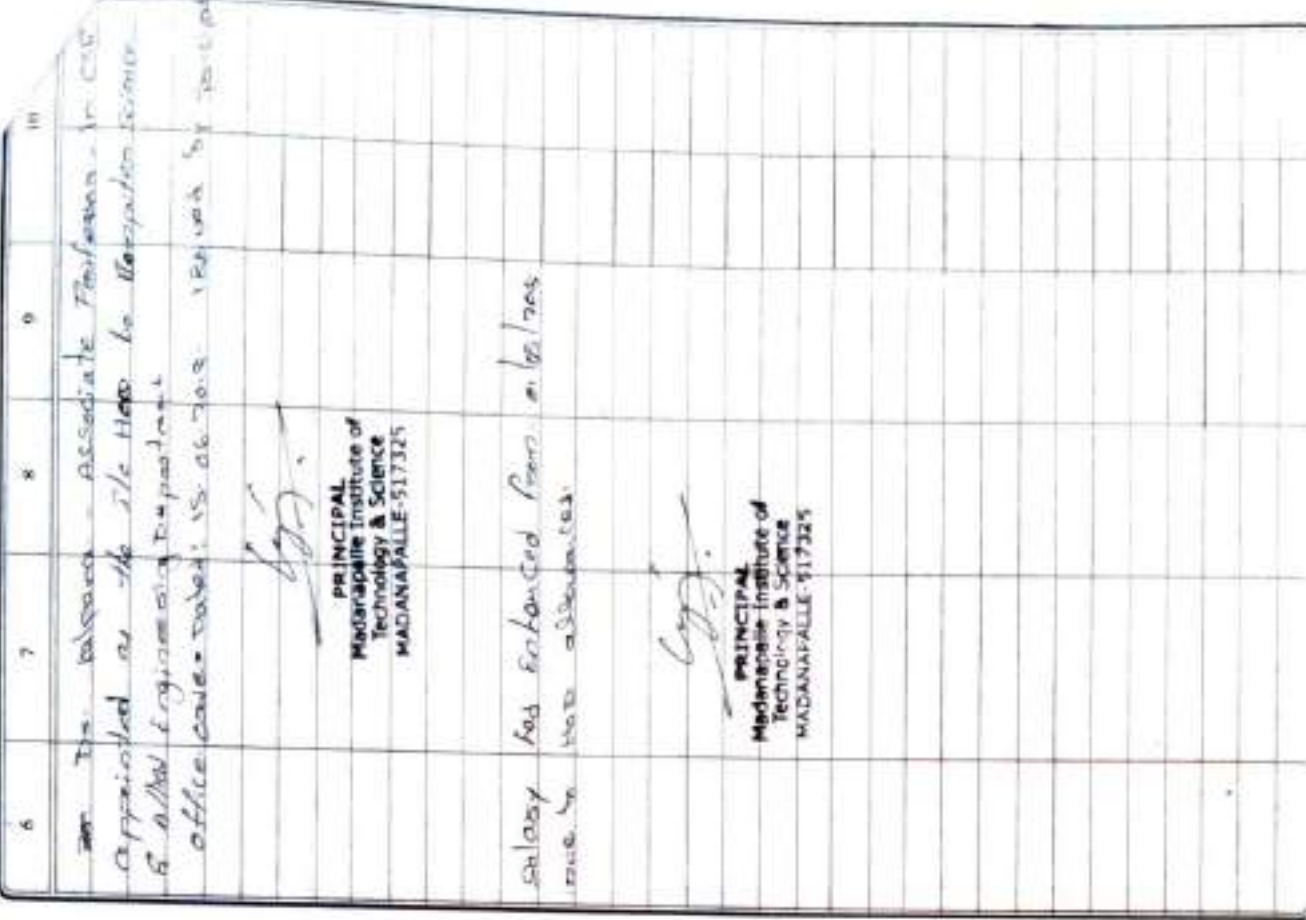 6 7 8 9 10
Dr. - Associate Professor in CSE
appointed as the I/c HOD to Computer Science
& Engineering Department
office order Dated: 15.06.2018 issued by
PRINCIPAL
Madanapalle Institute of
Technology & Science
MADANAPALLE-517325
salary has Enhanced from
due to HOD allowances.
PRINCIPAL
Madanapalle Institute of
Technology & Science
MADANAPALLE-517325